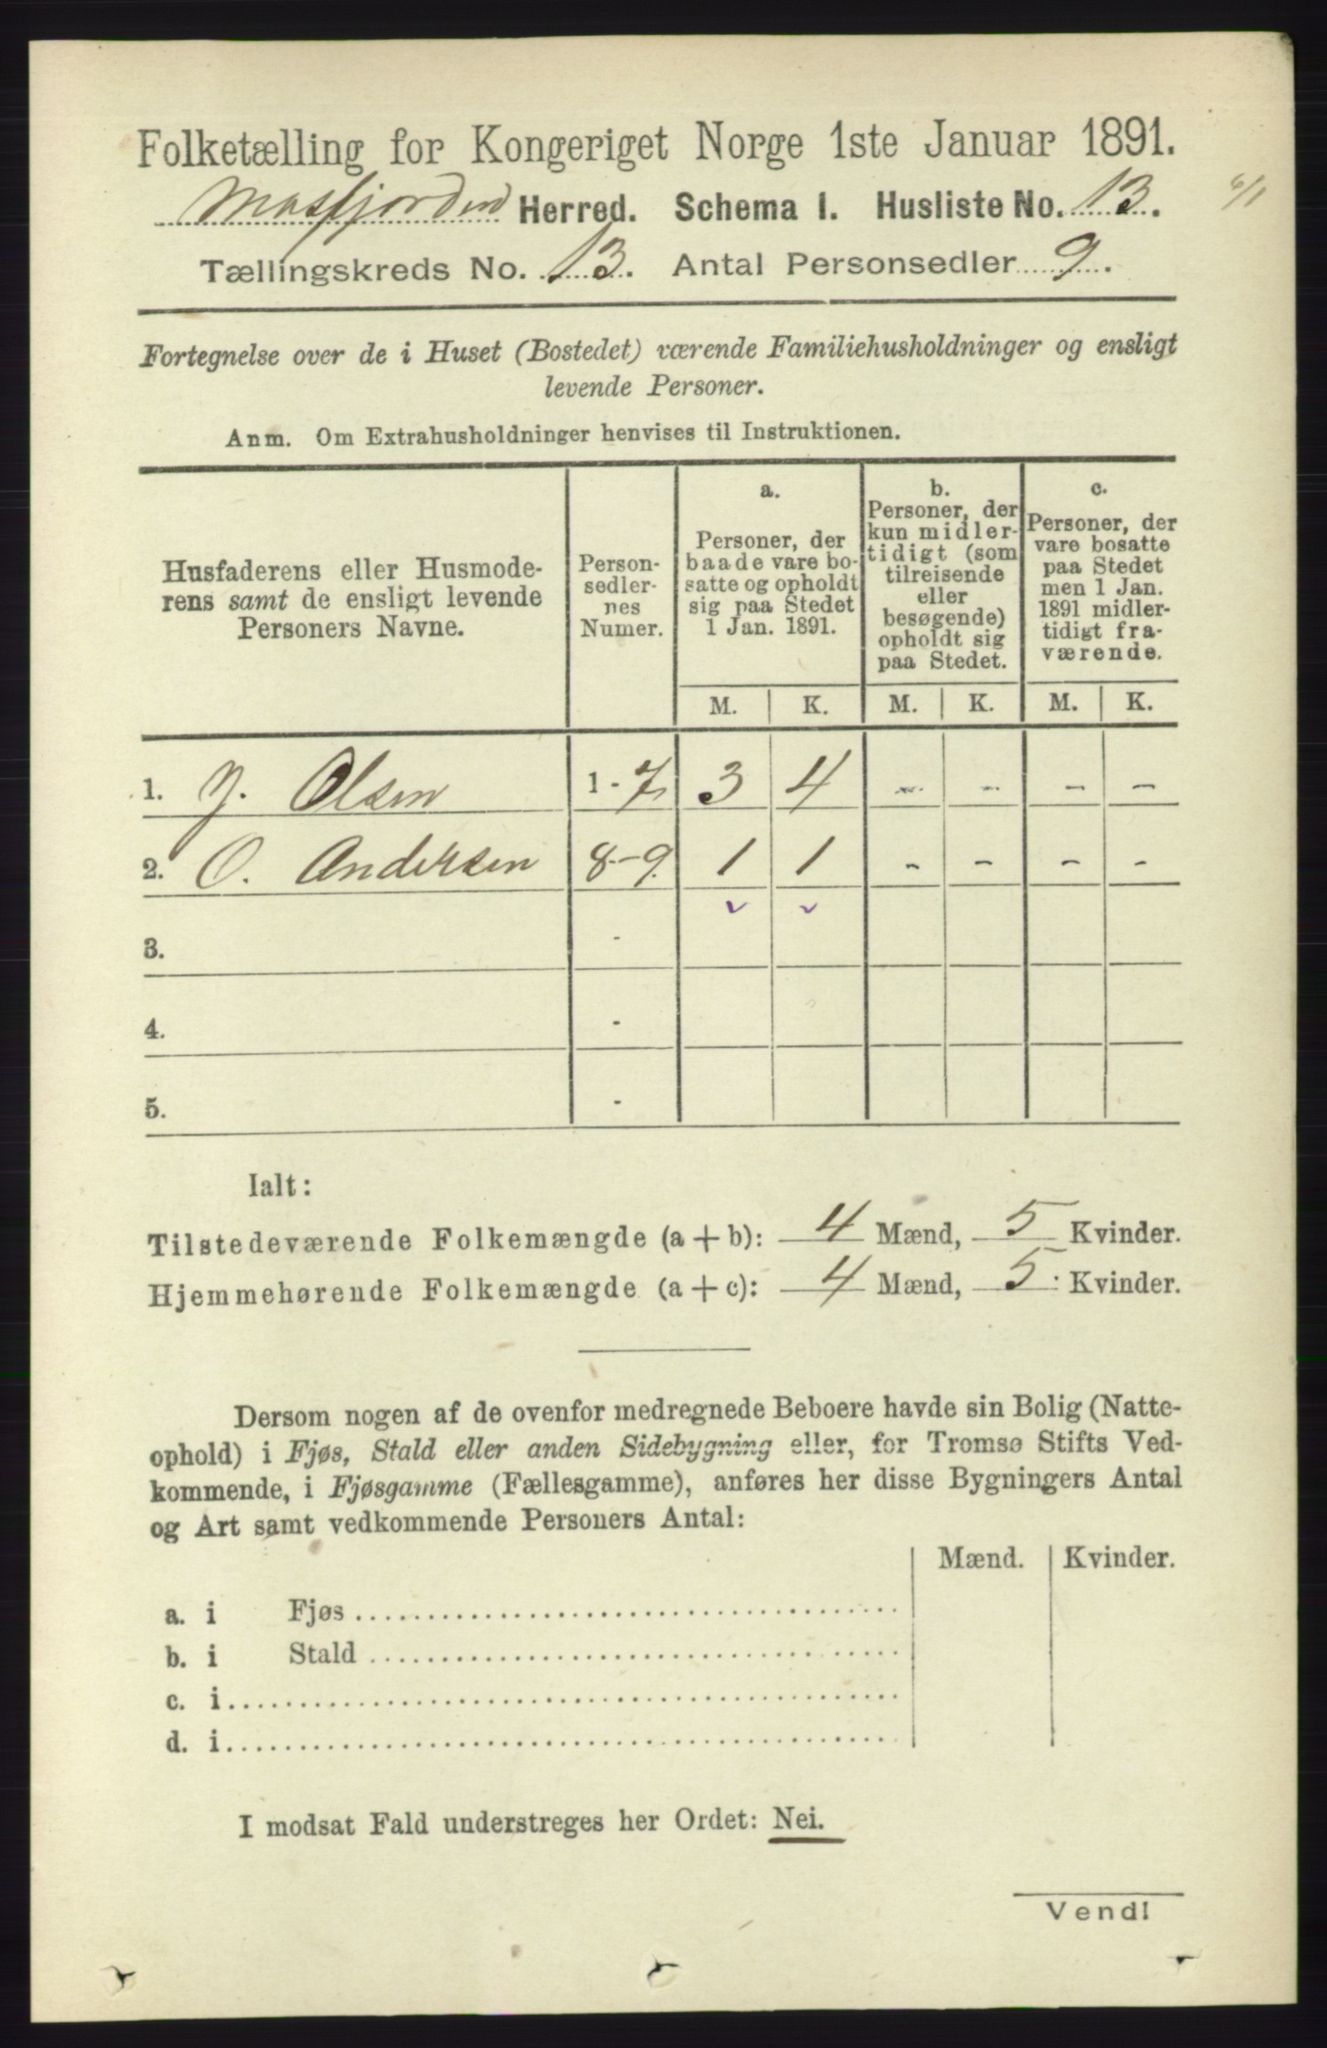 Folketælling for Kongeriget Norge 1ste Januar 1891.
Masfjorden Herred. Schema I. Husliste No. 13. 6/1
Tællingskreds No. 13. Antal Personsedler 9.
Fortegnelse over de i Huset (Bostedet) værende Familiehusholdninger og ensligt
levende Personer.
Anm. Om Extrahusholdninger henvises til Instruktionen.
Husfaderens eller Husmode-
rens samt de ensligt levende
Personers Navne.
Person-
sedler-
nes
Numer.
a.
Personer, der
baade vare bo-
satte og opholdt
sig paa Stedet
1 Jan. 1891.
b.
Personer, der
kun midler-
tidigt (som
tilreisende
eller
besøgende)
opholdt sig
paa Stedet.
c.
Personer, der
vare bosatte
paa Stedet
men 1 Jan.
1891 midler-
tidigt fra-
værende.
M. K. M. K. M. K.
1. J. Olsen 1-7 3 4 - - - -
2. O. Andersen 8-9 1 1 - - - -
3. -
4. -
5. -
Ialt:
Tilstedeværende Folkemængde (a+b): 4 Mænd, 5 Kvinder.
Hjemmehørende Folkemængde (a+c): 4 Mænd, 5 Kvinder.
Dersom nogen af de ovenfor medregnede Beboere havde sin Bolig (Natte-
ophold) i Fjøs, Stald eller anden Sidebygning eller, for Tromsø Stifts Ved-
kommende, i Fjøsgamme (Fællesgamme), anføres her disse Bygningers Antal
og Art samt vedkommende Personers Antal:
Mænd. Kvinder.
a. i Fjøs
b. i Stald
c. i
d. i
I modsat Fald understreges her Ordet: Nei.
Vend!